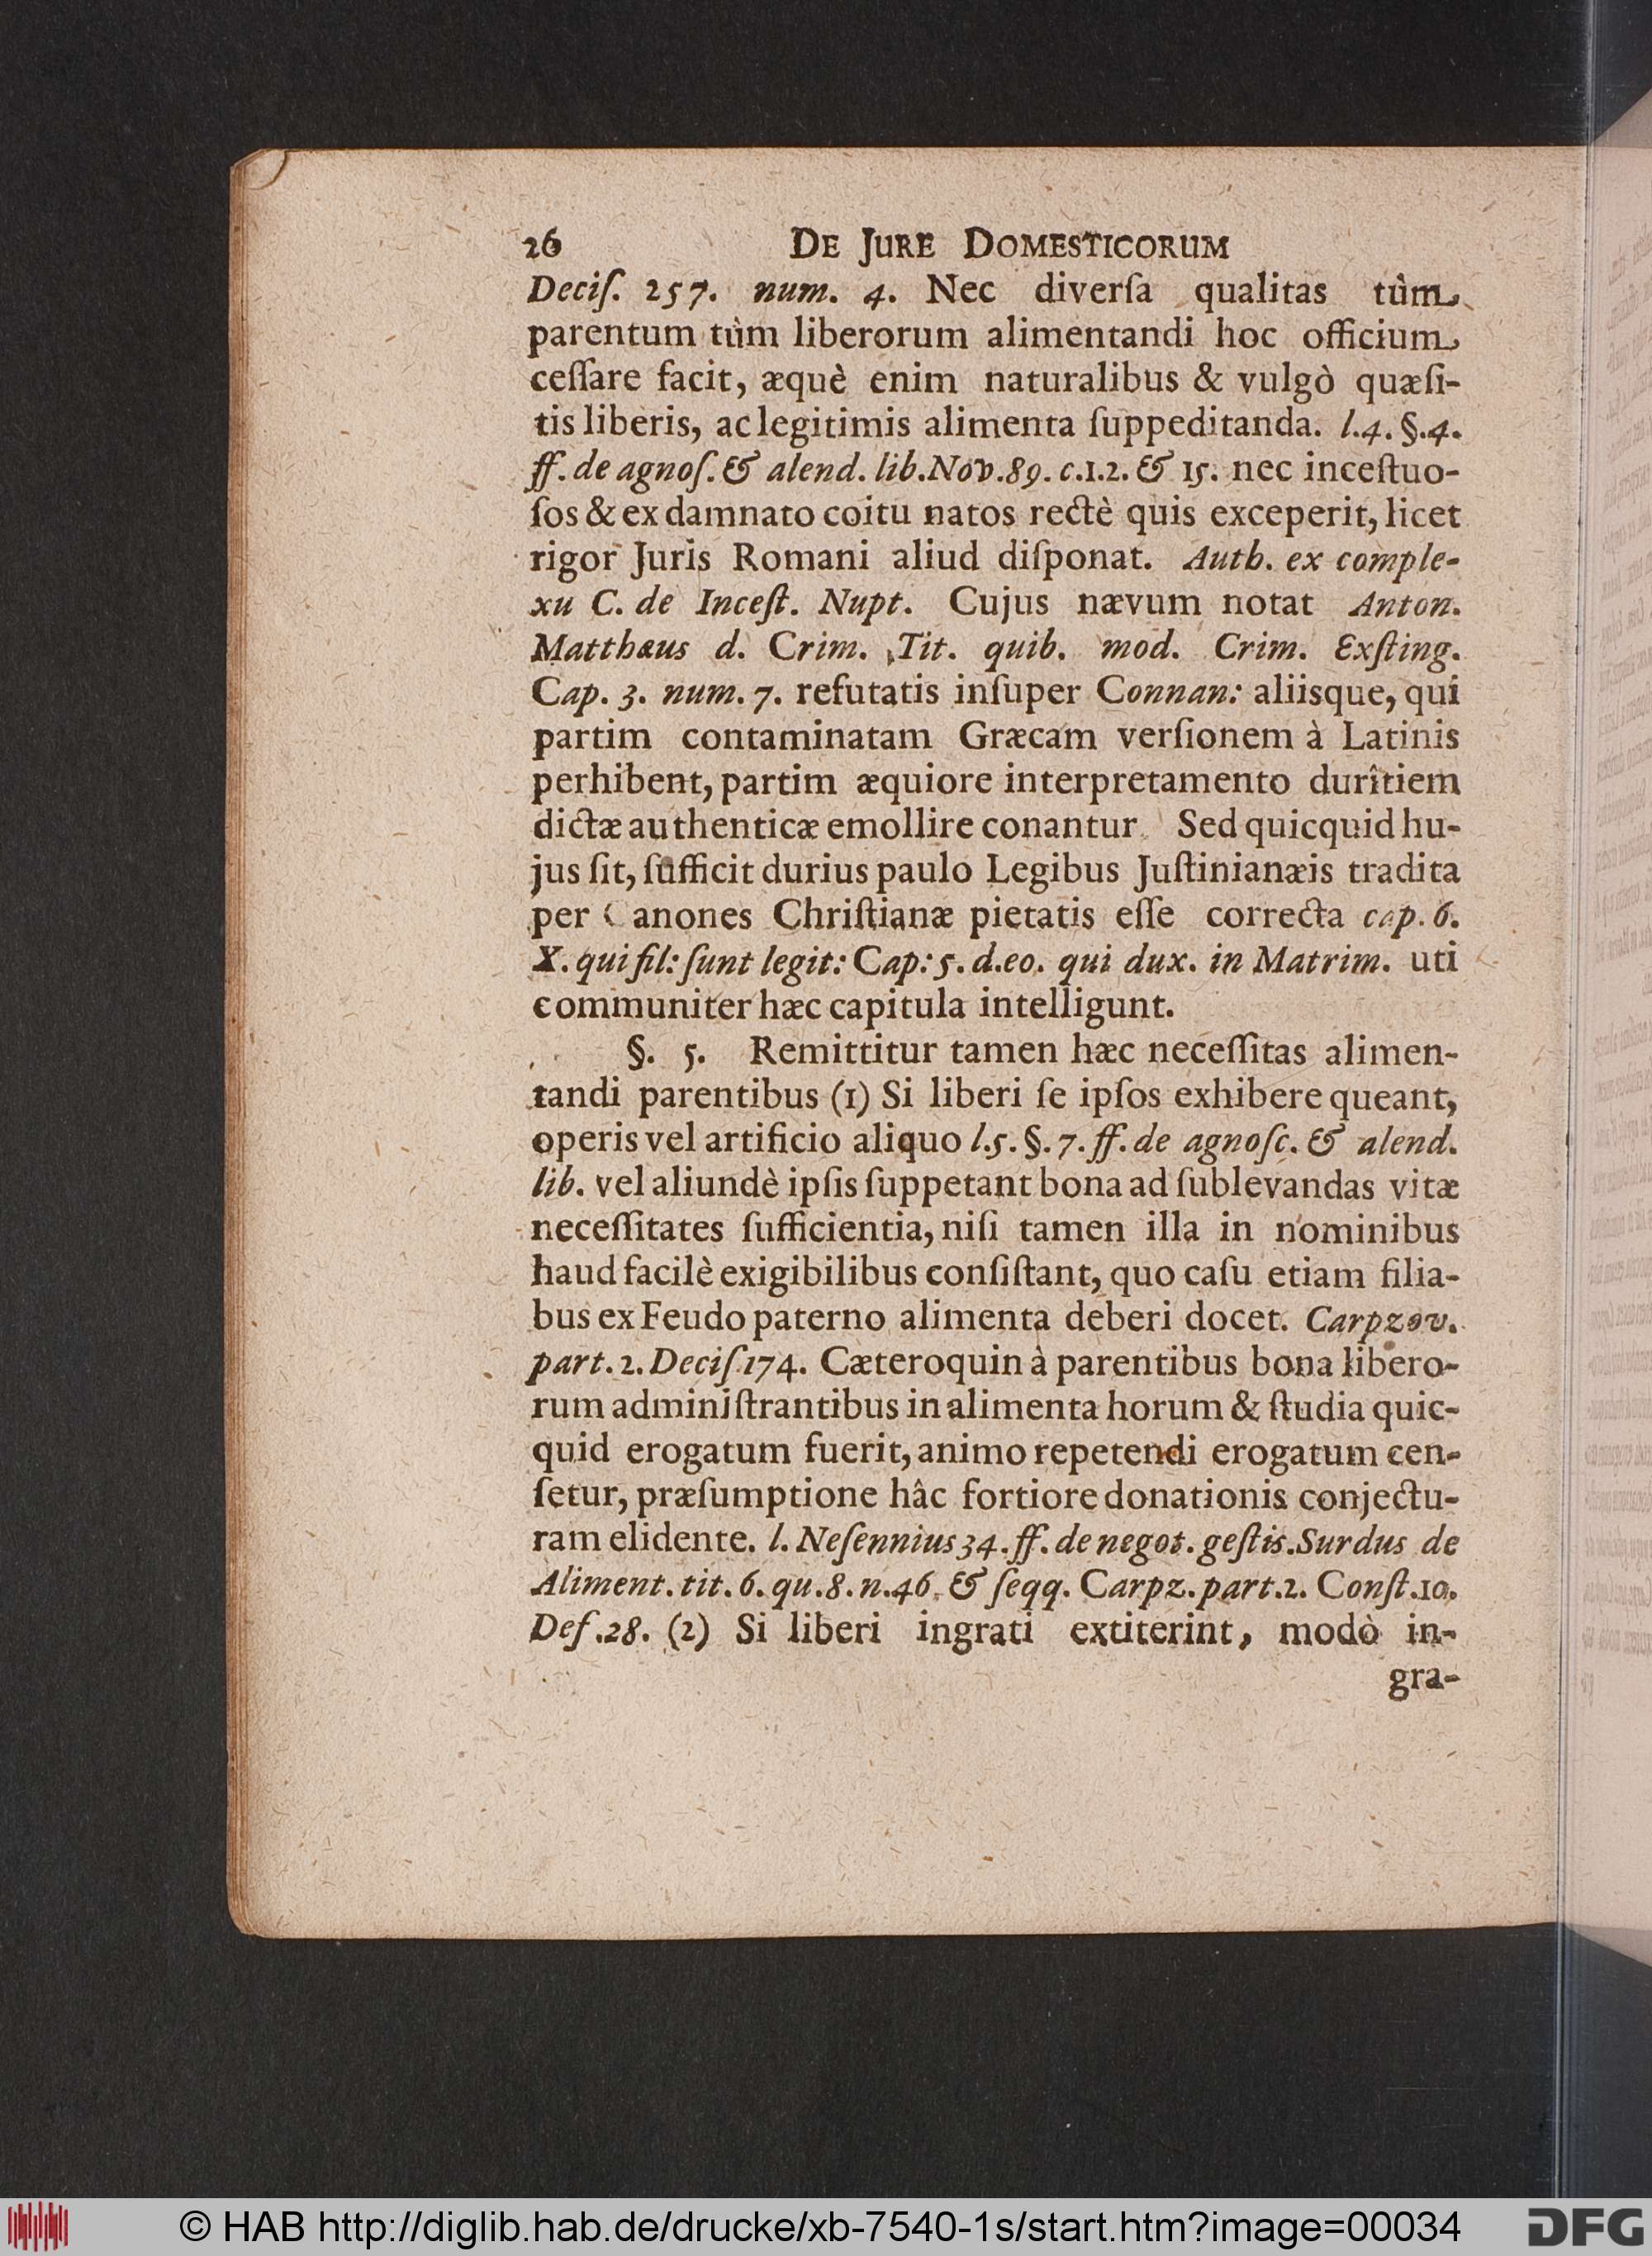 26 DE JURE DOMESTICORUM
Deciſ. 257. num. 4. Nec diverſa qualitas tùm
parentum tùm liberorum alimentandi hoc officium
ceſſare facit, æquè enim naturalibus & vulgò quæſi-
tis liberis, ac legitimis alimenta ſuppeditanda. l.4. §.4.
ff. de agnoſ. & alend. lib. Nov. 89. c.1.2. & 15. nec inceſtuo-
ſos & ex damnato coitu natos rectè quis exceperit, licet
rigor Juris Romani aliud diſponat. Auth. ex comple-
xu C. de Inceſt. Nupt. Cujus nævum notat Anton.
Matthæus d. Crim. Tit. quib. mod. Crim. Exſting.
Cap. 3. num. 7. refutatis inſuper Connan: aliisque, qui
partim contaminatam Græcam verſionem à Latinis
perhibent, partim æquiore interpretamento duritiem
dictæ authenticæ emollire conantur. Sed quicquid hu-
jus ſit, ſufficit durius paulo Legibus Juſtinianæis tradita
per Canones Chriſtianæ pietatis eſſe correcta cap. 6.
X. qui fil: ſunt legit: Cap: 5. d. eo. qui dux. in Matrim. uti
communiter hæc capitula intelligunt.
§. 5. Remittitur tamen hæc neceſſitas alimen-
tandi parentibus (1) Si liberi ſe ipſos exhibere queant,
operis vel artificio aliquo l.5. §. 7. ff. de agnoſc. & alend.
lib. vel aliundè ipſis ſuppetant bona ad ſublevandas vitæ
neceſſitates ſufficientia, niſi tamen illa in nominibus
haud facilè exigibilibus conſiſtant, quo caſu etiam filia-
bus ex Feudo paterno alimenta deberi docet. Carpzov.
part. 2. Deciſ 174. Cæteroquin à parentibus bona libero-
rum adminiſtrantibus in alimenta horum & ſtudia quic-
quid erogatum fuerit, animo repetendi erogatum cen-
ſetur, præſumptione hâc fortiore donationis conjectu-
ram elidente. l. Neſennius 34. ff. de negot. geſtis. Surdus de
Aliment. tit. 6. qu. 8. n. 46. & ſeqq. Carpz. part. 2. Conſt. 10.
Def. 28. (2) Si liberi ingrati extiterint, modò in-
gra-
© HAB http://diglib.hab.de/drucke/xb-7540-1s/start.htm?image=00034
DFG